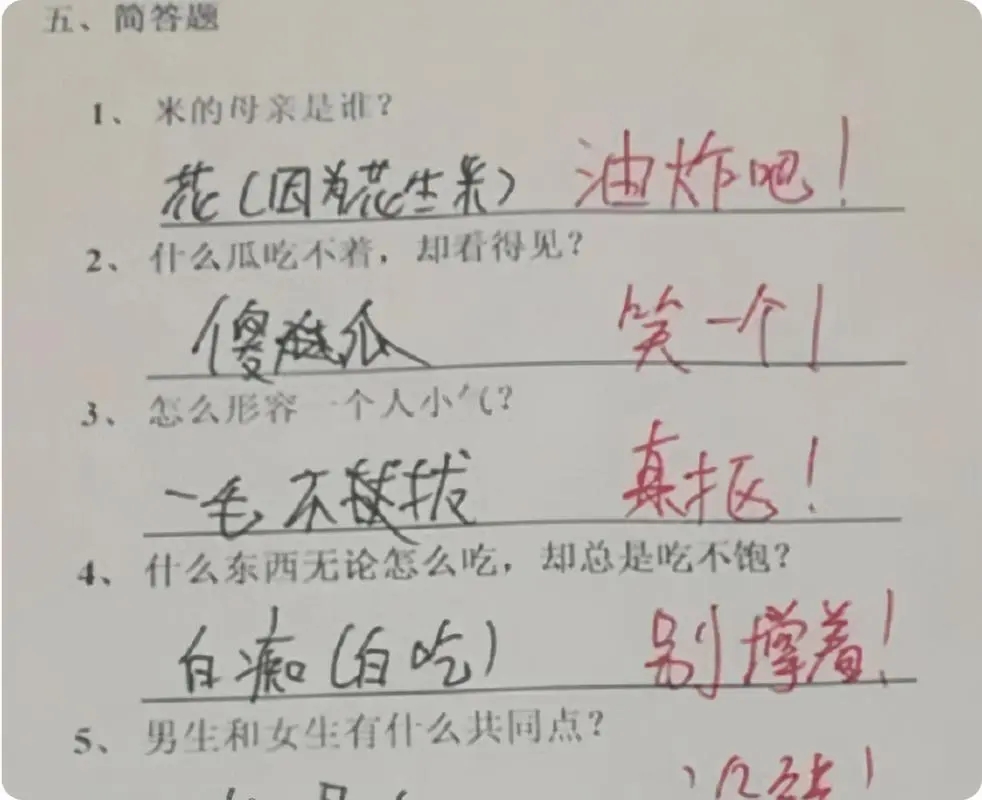 五、简答题
1、米的母亲是谁?
花(因为花生米) 油炸吧!
2、什么瓜吃不着,却看得见?
傻瓜 笑一个!
3、怎么形容一个人小气?
一毛不拔 真抠!
4、什么东西无论怎么吃,却总是吃不饱?
白痴(白吃) 别撑着!
5、男生和女生有什么共同点?